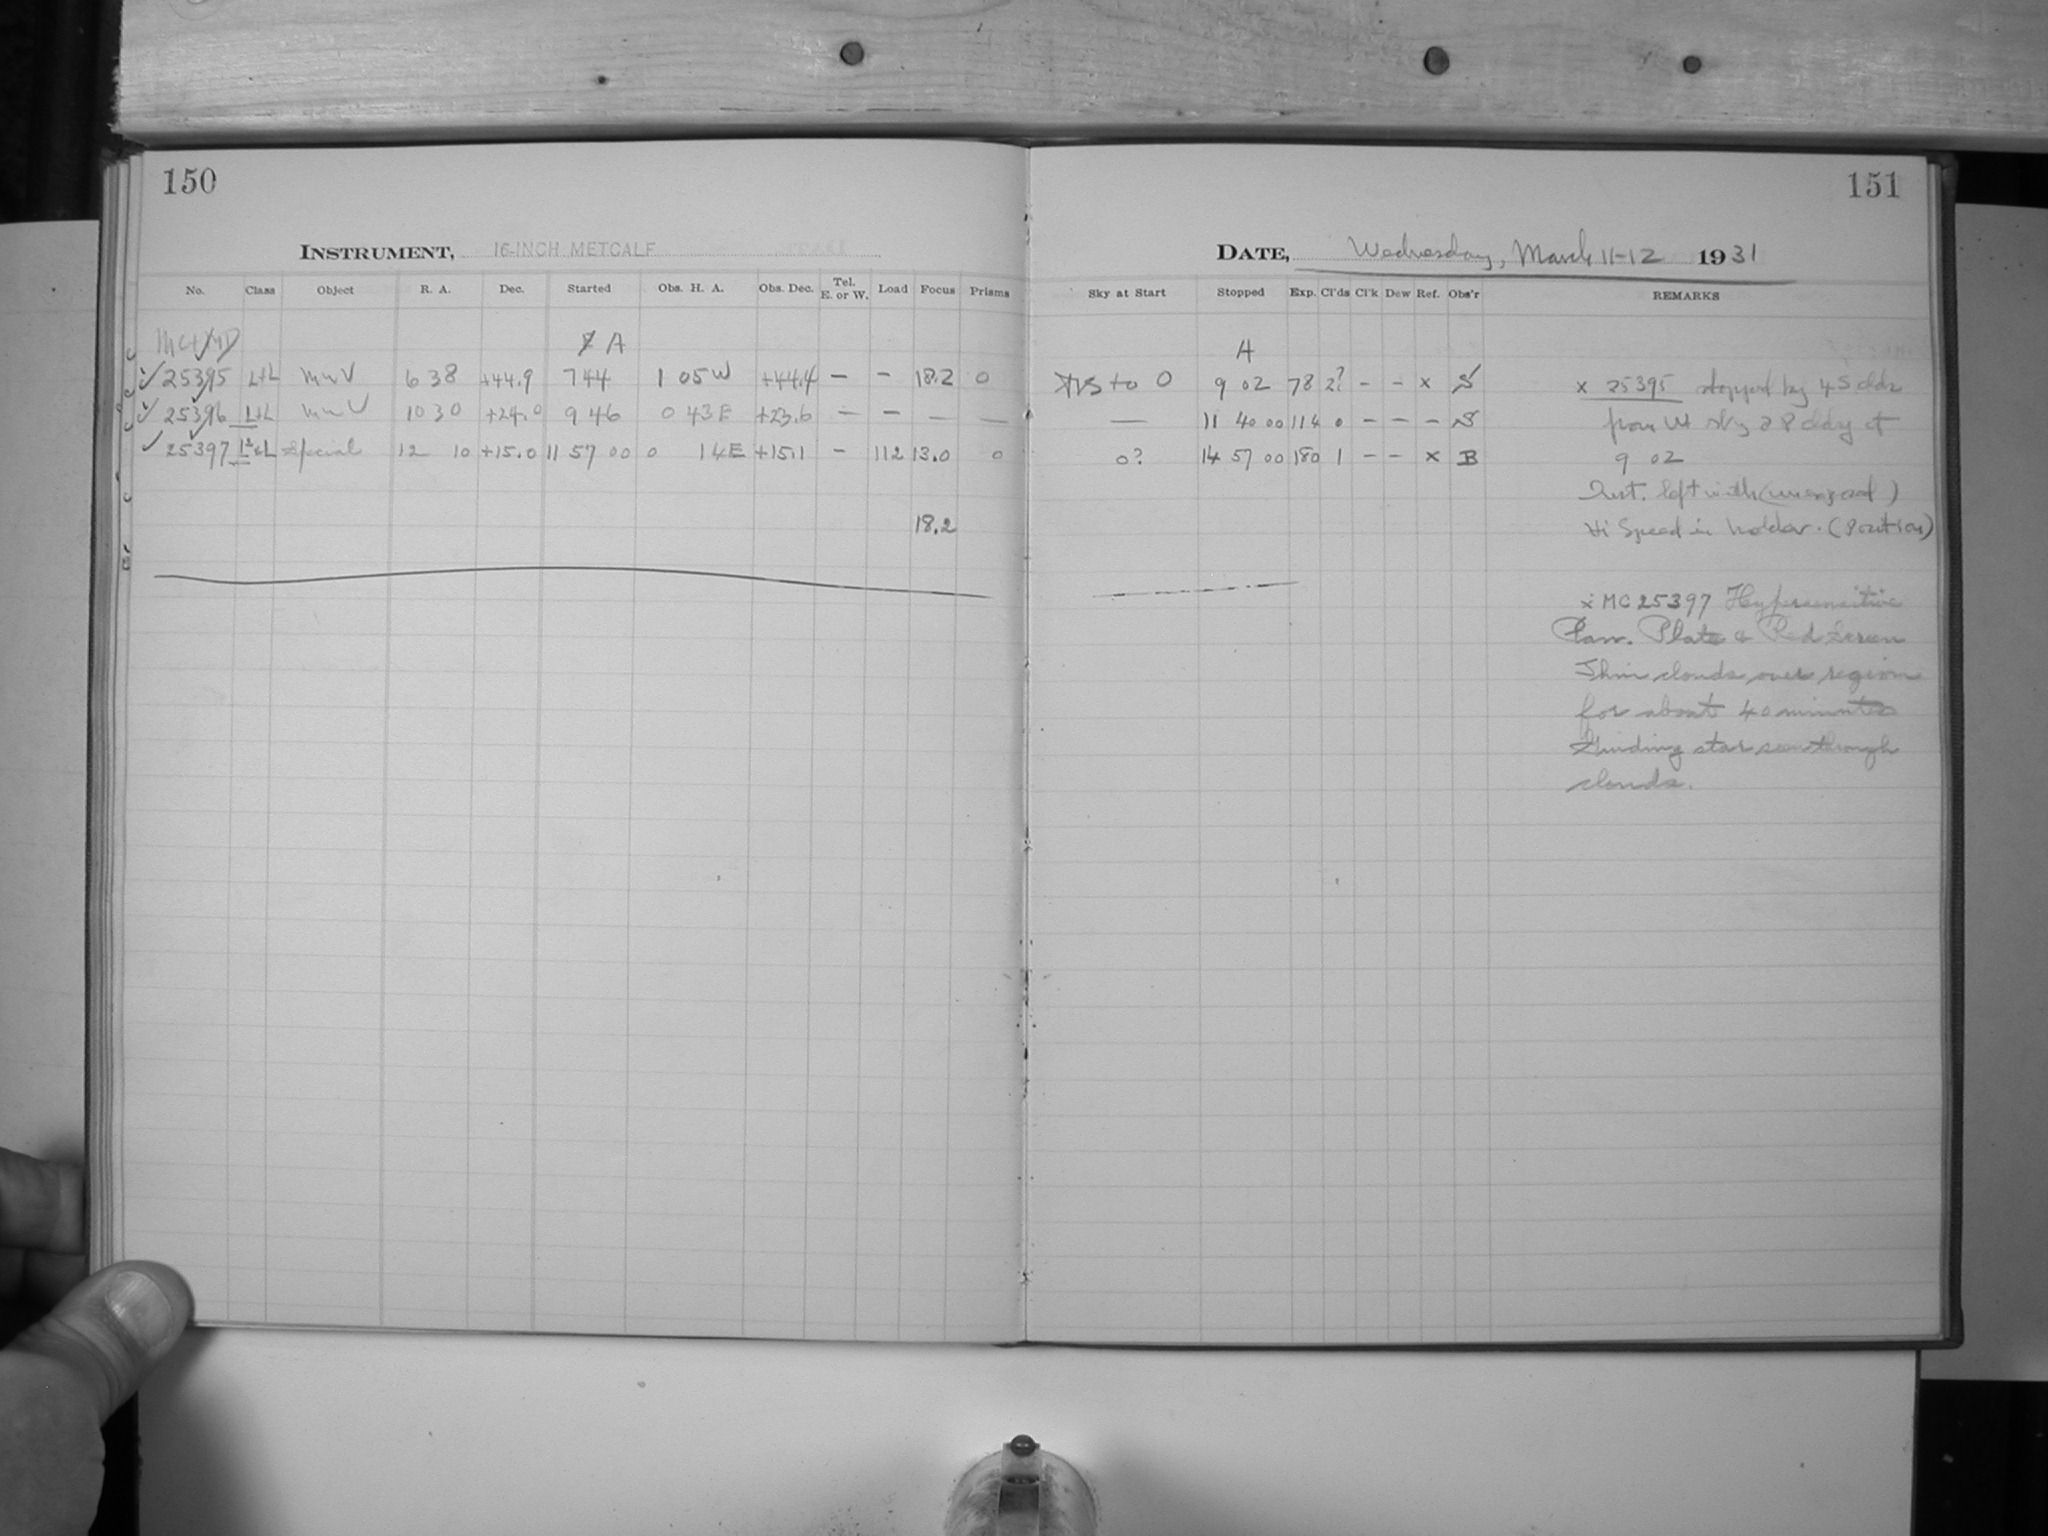 150
INSTRUMENT, 16-INCH METCALF
No. Class Object R. A. Dec. Started Obs. H. A. Obs. Dec. Tel. E. or W. Load Focus Prisms
A
25395 L+L MWV 6 38 +44.9 7 44 1 05 W +44.4 — — 18.2 0
25396 L+L MWV 10 30 +24.0 9 46 0 43 E +23.6 — — — —
25397 Special 12 10 +15.0 11 57 00 0 14 E +15.1 - 112 13.0 0
18.2
151
DATE, Wednesday, March 11-12 1931
Sky at Start Stopped Exp. Cl'ds Cl'k Dew Ref. Obs'r REMARKS
A
to 0 9 02 78 2? - - x S x 25395 stopped by
— 11 40 00 114 0 - - - S from sky at
0? 14 57 00 180 1 - - x B 9 02
Inst. left with
Hi Speed in holder. (Position)
x MC 25397 Hypersensitive
Pan. Plate & Red Screen
Thin clouds over region
for about 40 minutes
Guiding star seen through
clouds.